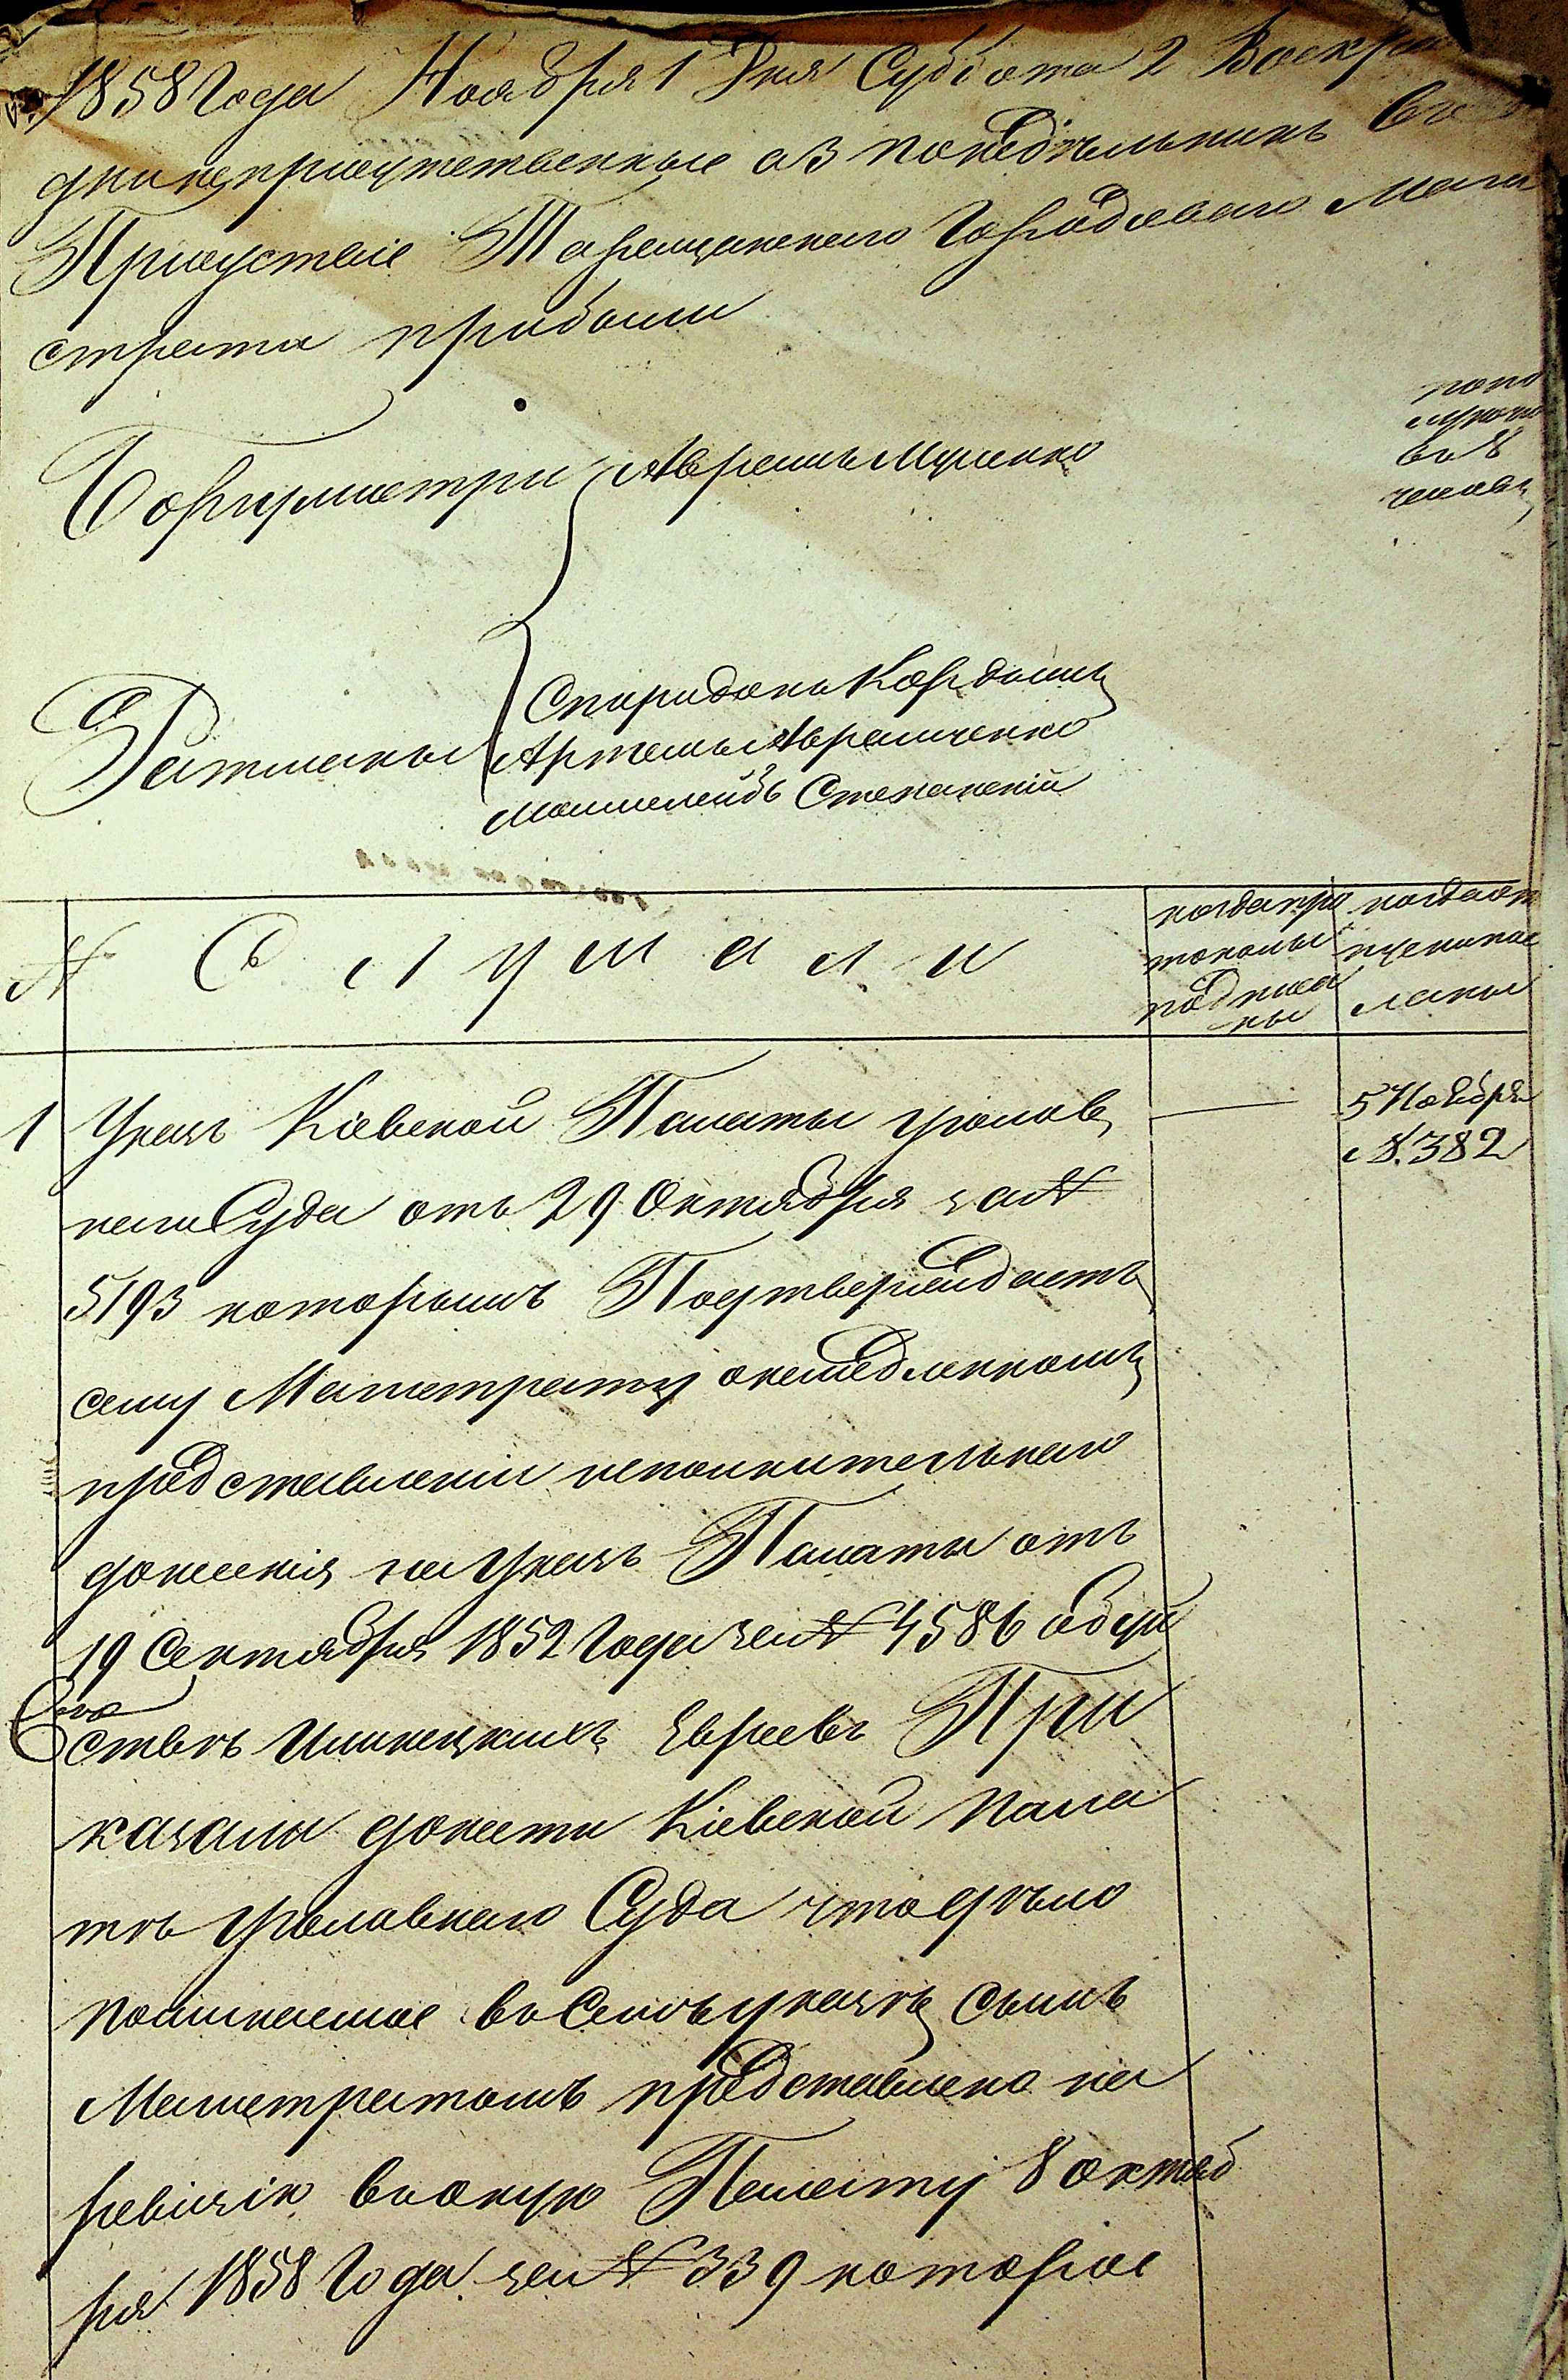 1858 Года Ноября 1 Дня Суббота 2 Воскре
дни неприсутственные а 3 понедѣльникъ Въ
Присуствіе Таращанского Городоваго Маги
страта прибыли
попо
луночи
въ 8
часовъ
Боргумистри Авраамъ Мусенко
Ратманы
Спиридонъ Кордышъ
Артемъ Авраменко
Мошилейбъ Стеканскій
№ Слушали
когда про
токолы
подписа
ны
когда от
пуски пос
ланы
1 Указъ Кіевской Палаты уголов
наго Суда отъ 29 Октября за №
5193 которымъ Подтверждаетъ
сему Магистрату онемедленномъ
представленіи исполнительнаго
донесенія на Указъ Палаты отъ
19 Сентября 1852 Года за № 4586 объ уй
ствѣ Илинецкихъ Евреевъ При
казали донести Кіевской Пала
тѣ уголовнаго Суда что дѣло
поминаемое въ Семъ указѣ симъ
Магистратомъ представлено на
ревизію въ оную Палату 8 октяб
ря 1858 Года за № 339 которое
5 Ноября
№ 382